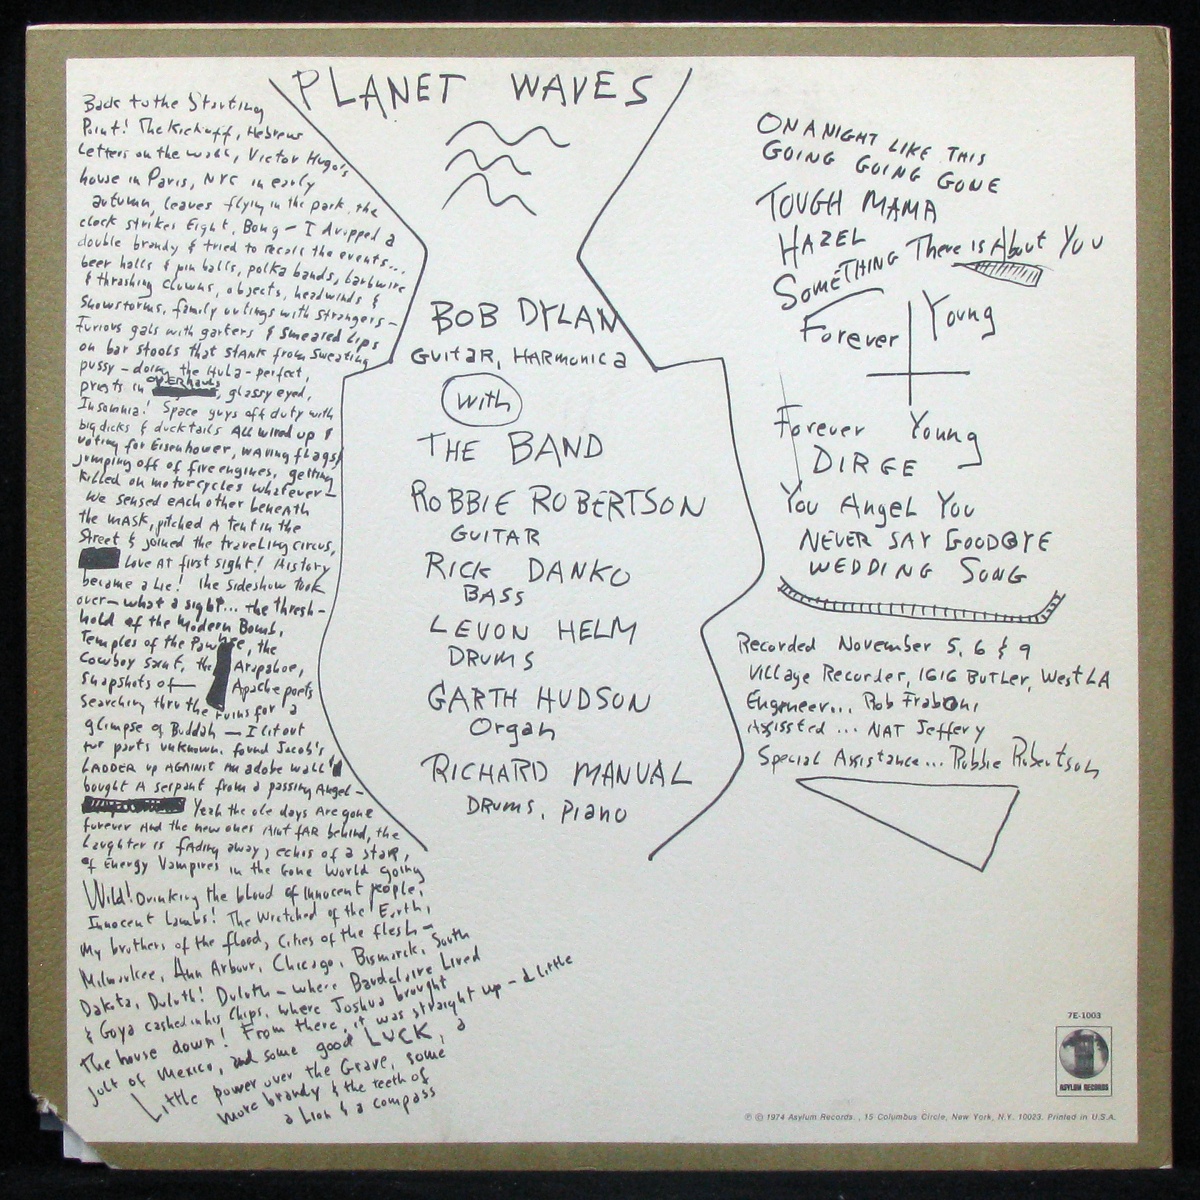 PLANET WAVES
Back to the Starting
Point! The Kickoff, Hebrew
Letters on the wall, Victor Hugo's
house in Paris, NYC in early
autumn, leaves flying in the park, the
clock strikes Eight, Bong – I dropped a
double brandy & tried to recall the events...
beer halls & pin balls, polka bands, barbwire
& thrashing clowns, objects, headwinds &
Snowstorms, family outings with strangers –
Furious gals with garters & smeared Lips
on bar stools that stank from sweating
pussy – doing the Hula – perfect,
priests in overhauls, glassy eyed,
Insomnia! Space guys off duty with
big dicks & ducktails All wired up &
voting for Eisenhower, waving flags &
jumping off of fire engines, getting
Killed on motorcycles whatever –
We sensed each other beneath
the mask, pitched A tent in the
Street & joined the traveling circus,
Love AT first sight! History
became a Lie! The sideshow Took
over – what a sight... the thresh-
hold of the Modern Bomb,
Temples of the Pawnee, the
Cowboy saint, the Arapahoe,
Snapshots of – Apache poets
Searching thru the ruins for a
glimpse of Buddah – I lit out
for parts unknown, found Jacob's
LADDER up AGAINST an adobe wall &
bought A serpant from a passing Angel –
Yeah the ole days Are gone
forever And the new ones Aint fAR behind, the
Laughter is fAding away, echos of a staR,
of Energy Vampires in the Gone World going
Wild! Drinking the blood of innocent people,
Innocent Lambs! The Wretched of the Earth,
My brothers of the flood, Cities of the flesh –
Milwaukee, Ann Arbour, Chicago, Bismarck, South
Dakota, Duluth! Duluth – where Baudelaire Lived
& Goya cashed in his Chips, where Joshua brought
The house down! From there, it was straight up – a little
jolt of Mexico, and some good LUCK, a
Little power over the Grave, some
more brandy & the teeth of
a Lion & a compass
BOB DYLAN
GUITAR, HARMONICA
with
THE BAND
ROBBIE ROBERTSON
GUITAR
RICK DANKO
BASS
LEVON HELM
DRUMS
GARTH HUDSON
Organ
RICHARD MANUAL
DRUMS, PIANO
ON A NIGHT LIKE THIS
GOING GOING GONE
TOUGH MAMA
HAZEL
SOMETHING There is About You
Forever Young
Forever Young
DIRGE
You Angel You
NEVER SAY GOODBYE
WEDDING SONG
Recorded November 5, 6 & 9
Village Recorder, 1616 BUTLER, West LA
Engineer... Rob Fraboni
Assissted ... NAT Jeffery
Special Assistance... Robbie Robertson
7E-1003
ASYLUM RECORDS
℗ © 1974 Asylum Records., 15 Columbus Circle, New York, N.Y. 10023. Printed in U.S.A.